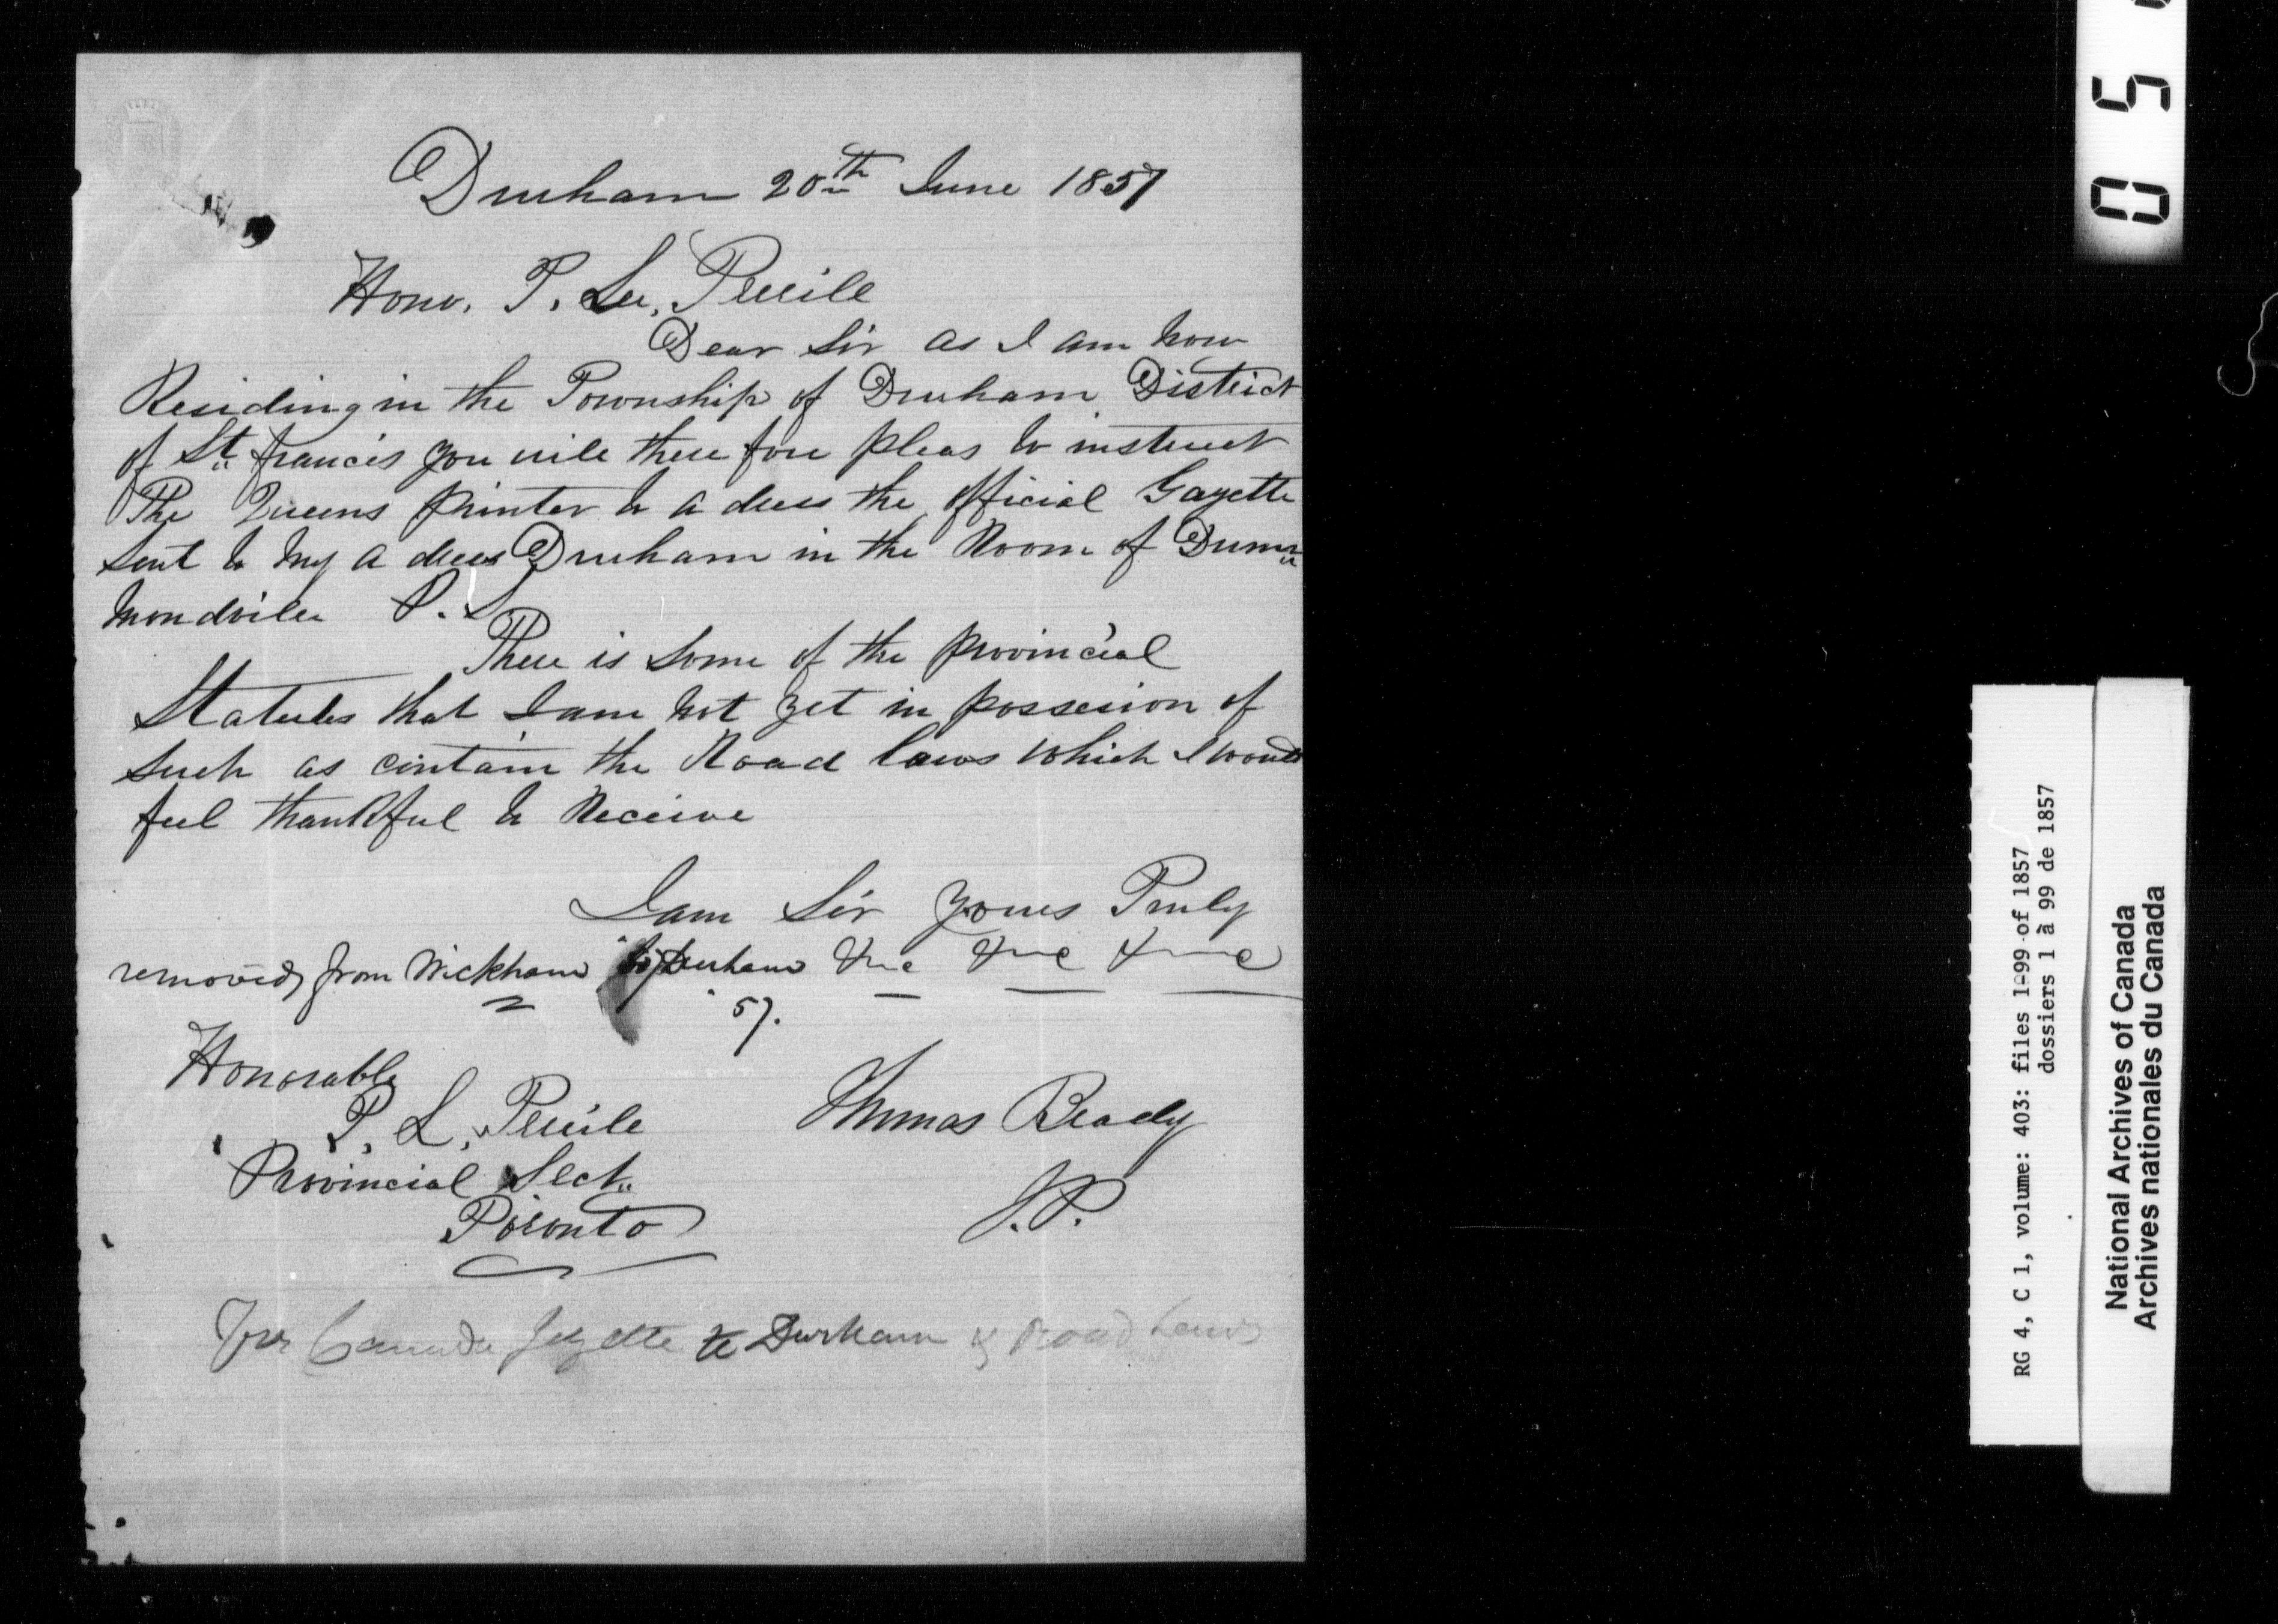 Durham 20th June 1857
Honr. T. Lee, Terrile
Dear Sir as I am now
Residing in the Township of Durham District
of St. francis you wile there fore pleas to instruct
The Queens printer to a dress the official Gazette
sent to my a dress Durham in the Room of Drum
mondvilee P. S
There is some of the provincial
Statutes that I am not yet in possession of
such as contain the Road laws which I would
feel thankful to Receive
I am Sir yours Truly
removed from Wickham to Durham &c &c &c
57.
Honorable
T. L, Terrile
Provincial Sect.
Toronto
Thomas Brady
J.P.
For Canada Gazette to Durham & Road Laws
0 5
RG 4, C 1, volume: 403: files 1-99 of 1857
dossiers 1 à 99 de 1857
National Archives of Canada
Archives nationales du Canada